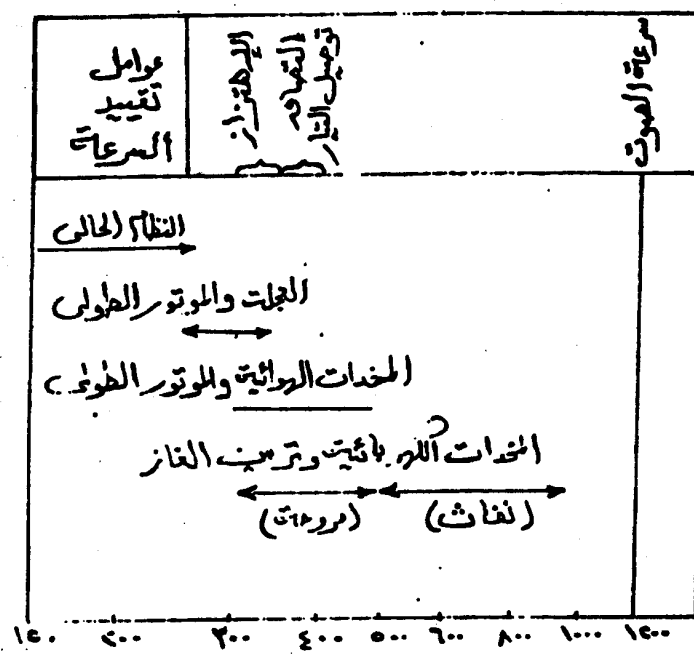 عوامل
تقييد
السرعة
الإهتزاز
التصاق
توصيل التيار
سرعة الصوت
النظام الحالى
العجلات والموتور الطولى
المخدات الهوائية والموتور الطولى
المخدات الكهربائية وتربين الغاز
(مروحة) (نفاث)
١٥٠ ٢٠٠ ٣٠٠ ٤٠٠ ٥٠٠ ٦٠٠ ٨٠٠ ١٠٠٠ ١٢٠٠